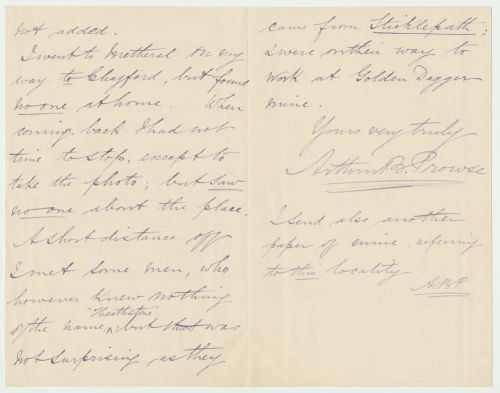 not added.
I went to Metheral on my
way to Chagford, but found
no one at home. When
coming back I had not
time to stop, except to
take the photo; but saw
no one about the place.
A short distance off
I met some men, who
however knew nothing
of the name, "Heathstone" but that was
not surprising as they
came from Sticklepath;
& were on their way to
work at Golden Dagger
mine.
Yours very truly
Arthur B. Prowse
I send also another
paper of mine, referring
to this locality.
A.B.P.